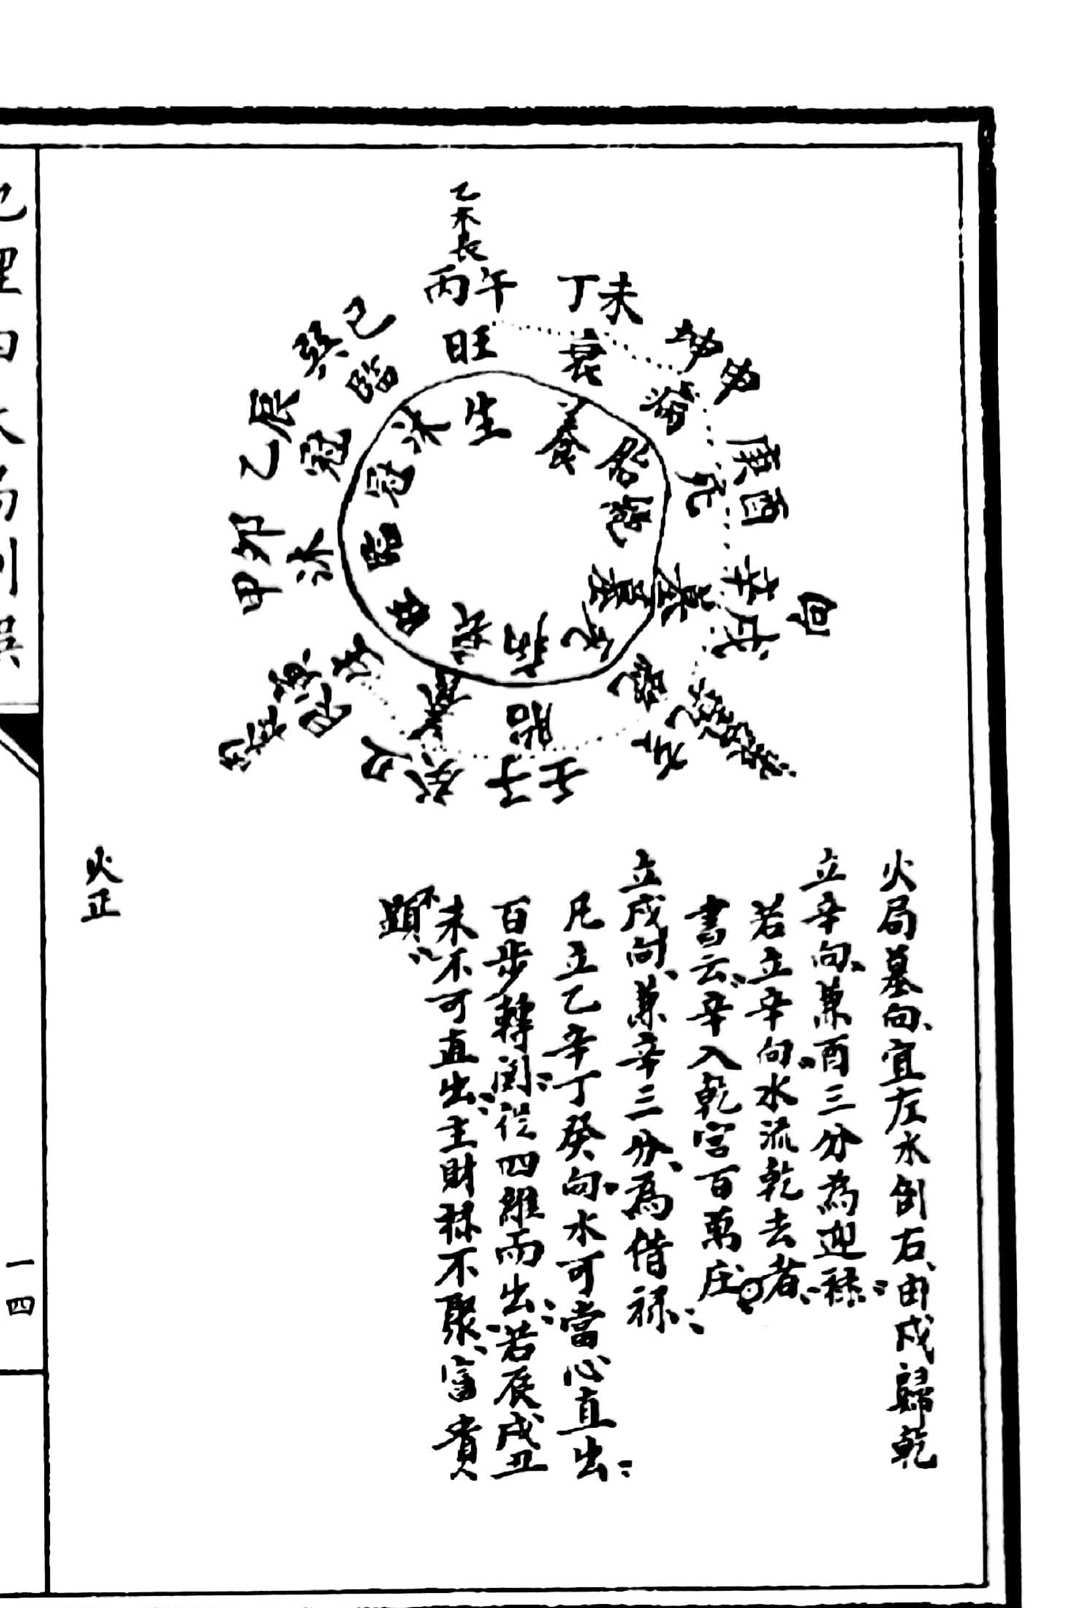 乙木長
丙午
丁未
坤申
庚酉
辛戌
向
乾亥
壬子
癸丑
艮寅
甲卯
乙辰
巽巳
旺
衰
病
死
墓
絕
胎
養
生
沐
冠
臨
生
養
胎
絕
墓
死
病
衰
旺
臨
冠
沐
火局墓向、宜左水倒右、由戌歸乾
立辛向、兼酉三分為迎祿
若立辛向水流乾去者、
書云、辛入乾宮百萬庄
立戌向、兼辛三分、為借祿
凡立乙辛丁癸向、水可當心直出
百步轉闗從四維而出、若辰戌丑
未不可直出、主財祿不聚、富貴不
顯
火正
一四